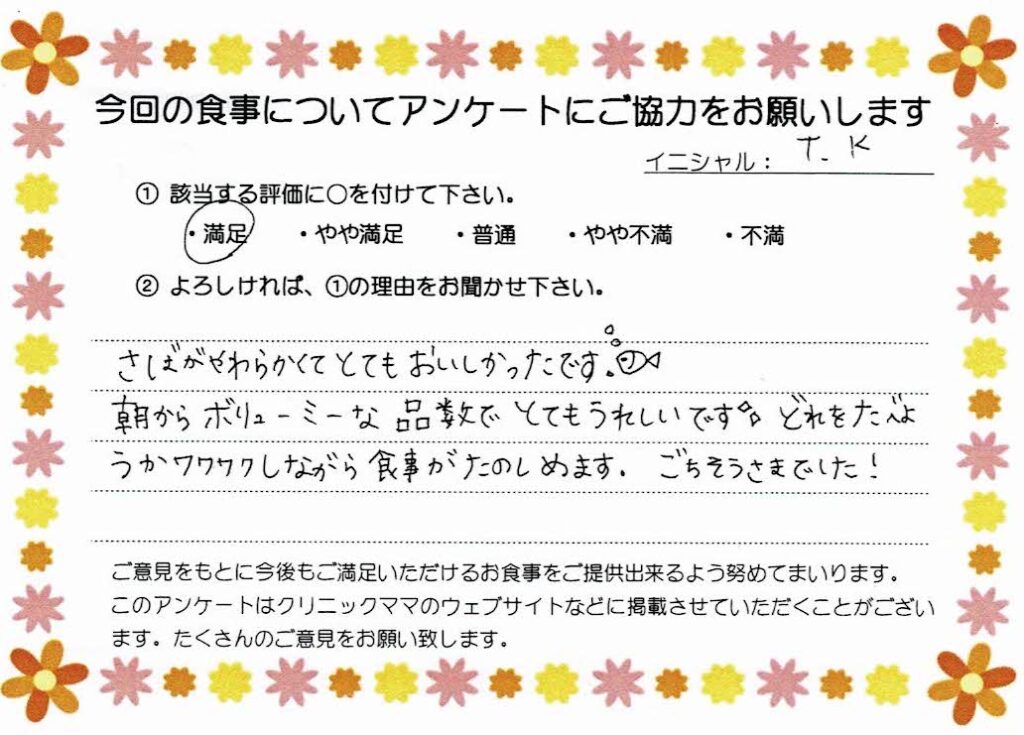 今回の食事についてアンケートにご協力をお願いします
イニシャル： T. K
① 該当する評価に〇を付けて下さい。
・満足 ・やや満足 ・普通 ・やや不満 ・不満
② よろしければ、①の理由をお聞かせ下さい。
さばがやわらかくてとてもおいしかったです。
朝からボリューミーな品数でとてもうれしいです。どれをたべよ
うかワクワクしながら食事がたのしめます。ごちそうさまでした！
ご意見をもとに今後もご満足いただけるお食事をご提供出来るよう努めてまいります。
このアンケートはクリニックママのウェブサイトなどに掲載させていただくことがござい
ます。たくさんのご意見をお願い致します。